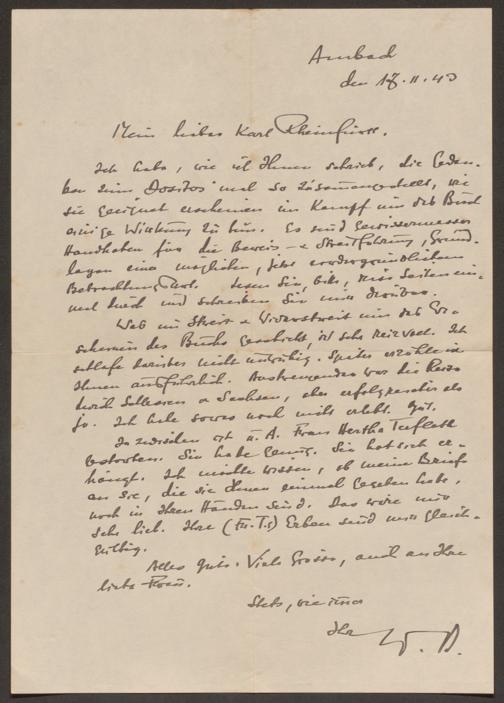 Ambach
den 17.11.43
Mein lieber Karl Rheinfurth.
Ich habe, wie ich Ihnen schrieb, die Gedan-
ken zum "Dositos" mal so zusammengestellt, wie
sie geeignet erscheinen im Kampf um das Buch
einige Wirkung zu tun. Es sind gewissermassen
Handhaben für die Beweis- u Streitführung, Grund-
lagen einer möglichen, jetzt vordergründlichen
Betrachtung. Lesen Sie, bitte, diese Seiten ein-
mal durch und schreiben Sie mir darüber.
Was im Streit u Widerstreit um das Er-
scheinen des Buches geschieht, ist sehr reizvoll. Ich
schlafe darüber nicht unruhig. Später erzähle ich
Ihnen ausführlich. Anstrengender war die Reise
durch Schlesien u Sachsen, aber erfolgreicher als
je. Ich habe sowas noch nicht erlebt. Gut.
Inzwischen ist u. A. Frau Hertha
gestorben. Sie habe genug. Sie hat sich er-
hängt. Ich möchte wissen, ob meine Briefe
an sie, die sie Ihnen einmal gegeben habe,
noch in Ihren Händen sind. Das wäre mir
sehr lieb. Ihre (Fr. Ts) Erben sind mir gleich-
gültig.
Alles Gute. Viele Grüsse, auch an Ihre
liebe Frau.
Stets, wie immer
Ihr W. B.